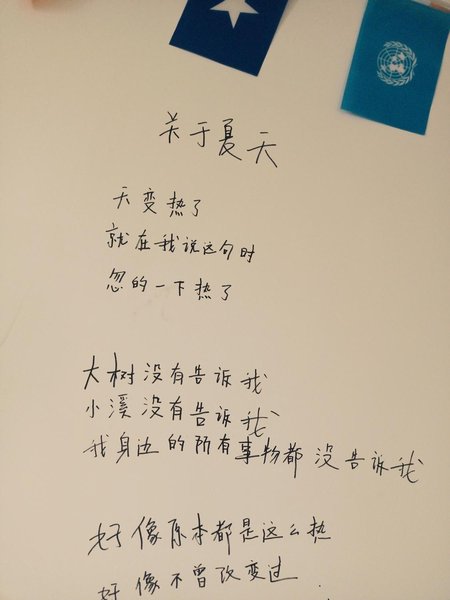 关于夏天
天变热了
就在我说这句时
忽的一下热了
大树没有告诉我
小溪没有告诉我
我身边的所有事物都没告诉我
好像原本都是这么热
好像不曾改变过